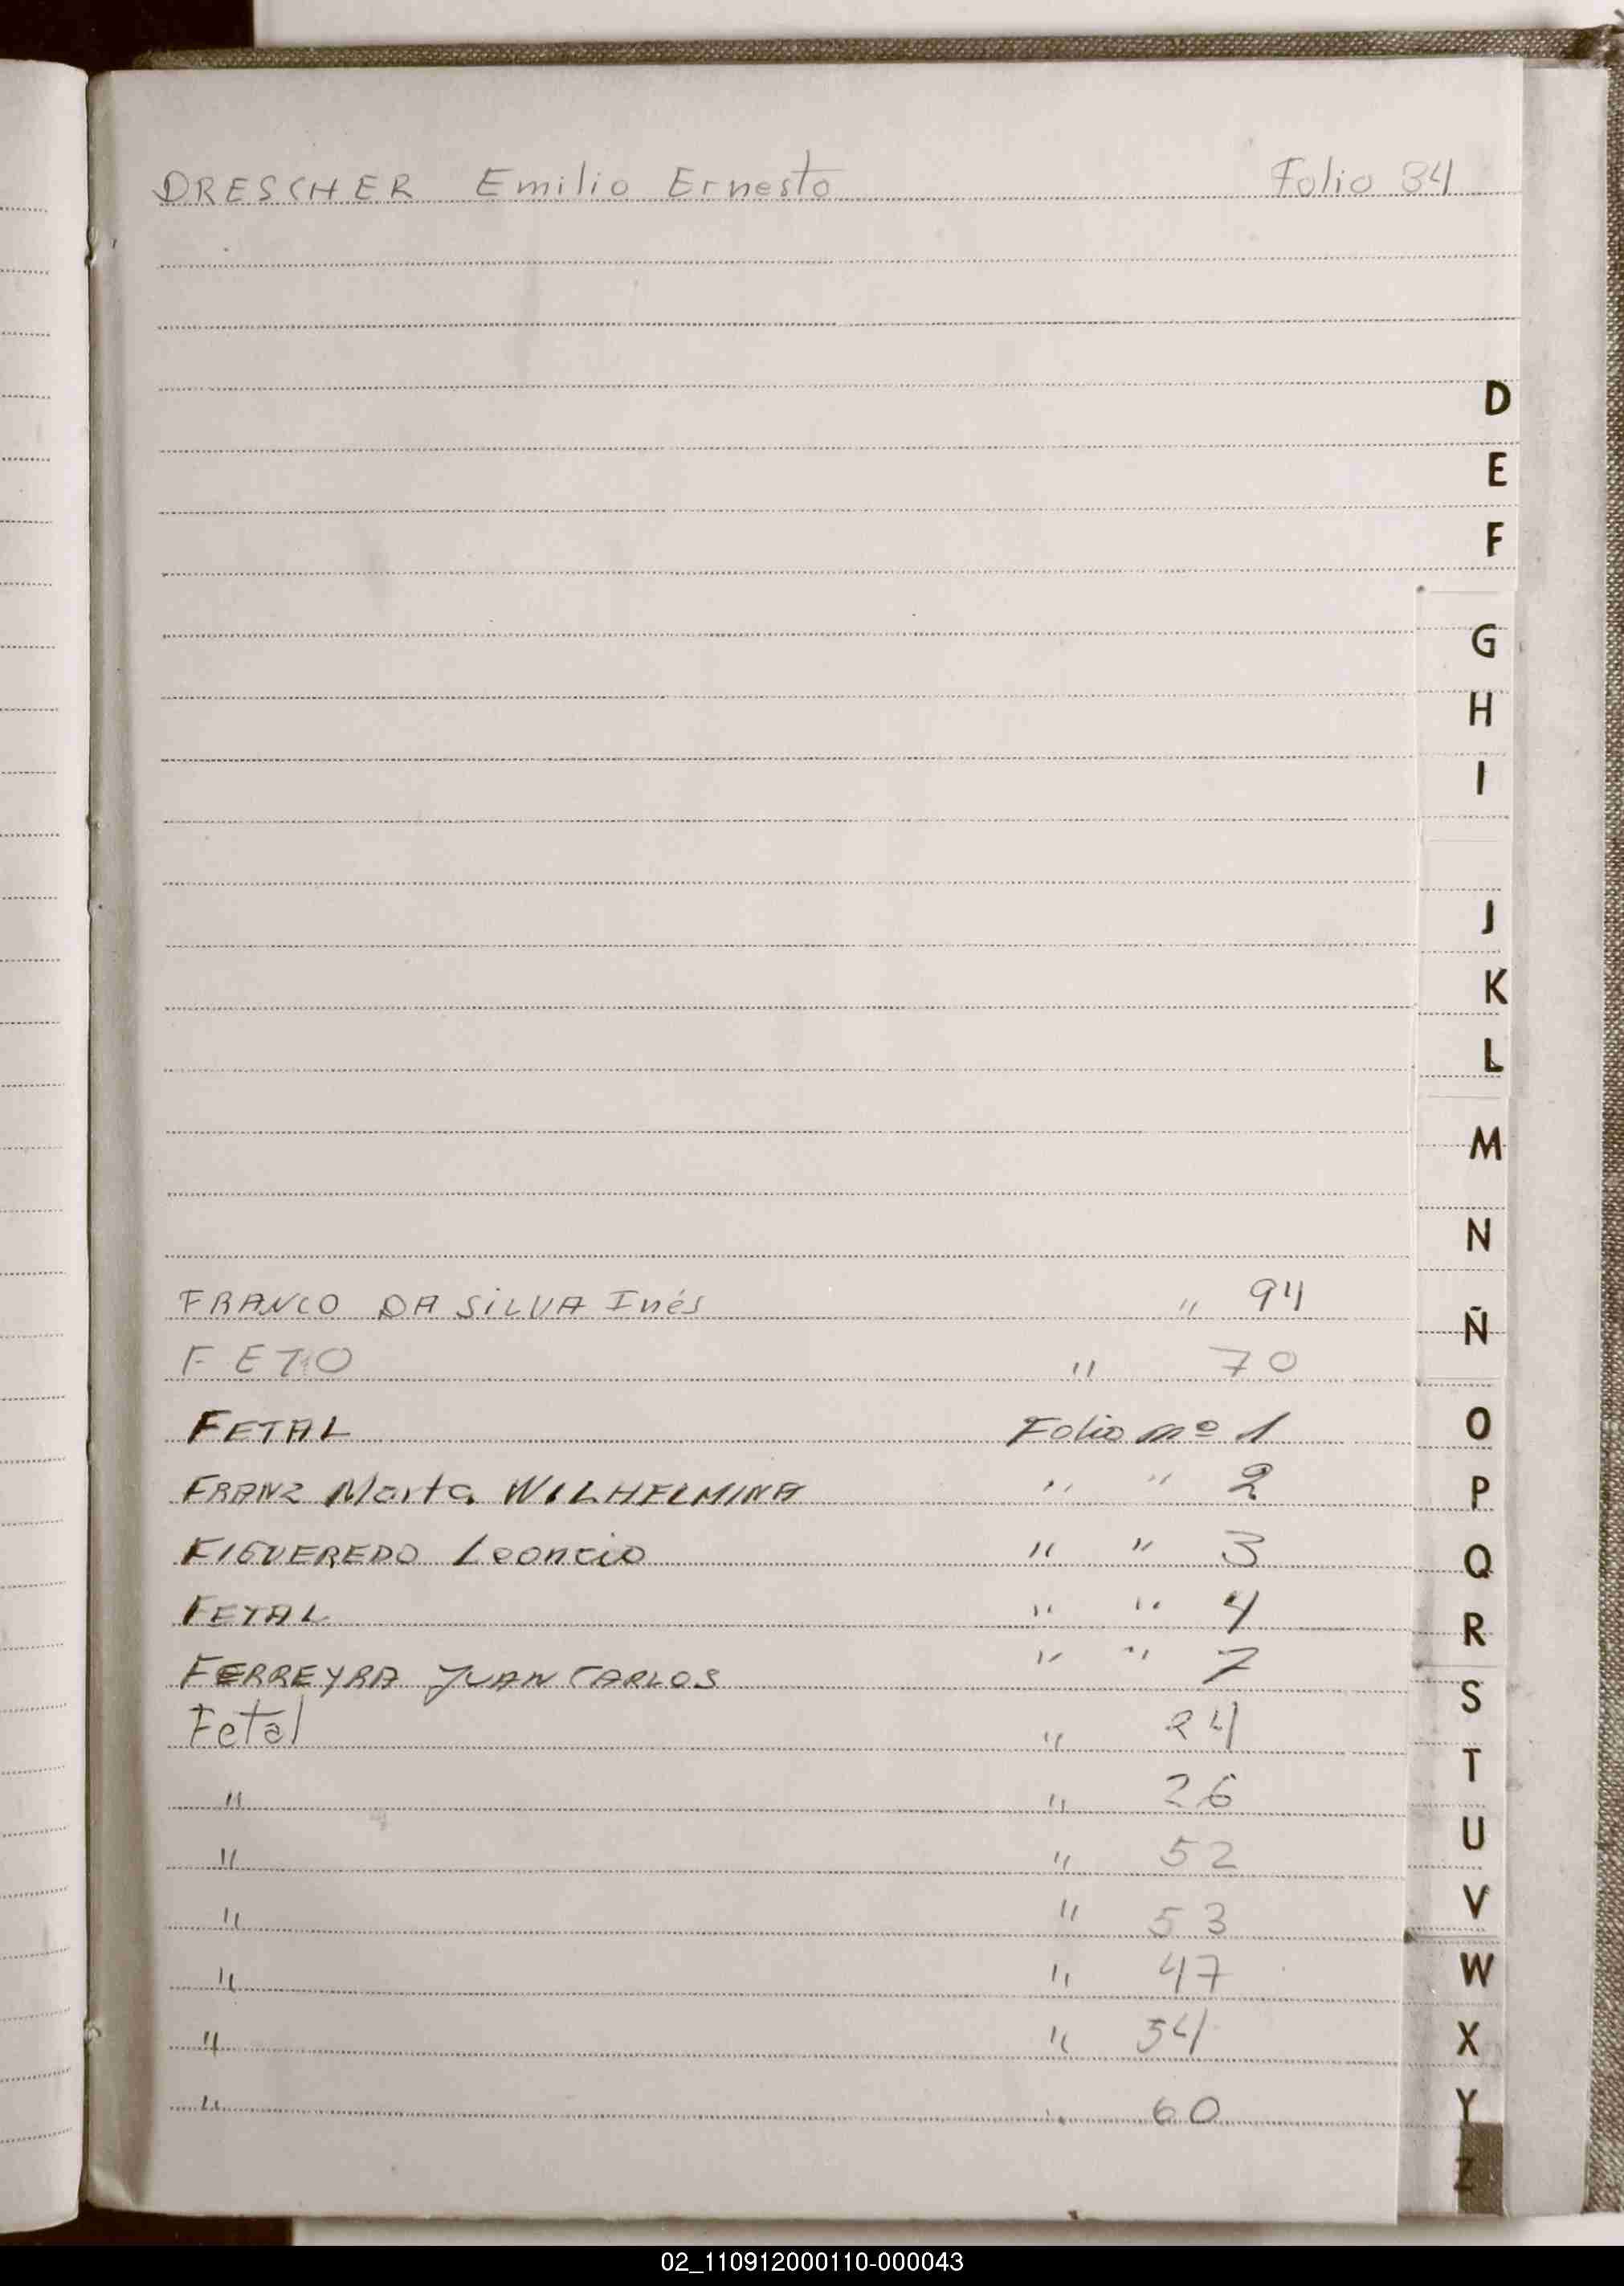 DRESCHER Emilio Ernesto Folio 84
D
E
F
G
H
I
J
K
L
M
N
Ñ
O
P
Q
R
S
T
U
V
W
X
Y
Z
FRANCO DA SiLVA Inés " 94
FETO " 70
FETAL Folio nº 1
FRANZ Marta WILHELMINA " " 2
FIGUEREDO Leoncio " " 3
FETAL " " 4
FERREYRA JUAN CARLOS " " 7
Fetal " 24
" " 26
" " 52
" " 53
" " 47
" " 54
" " 60
02_110912000110-000043